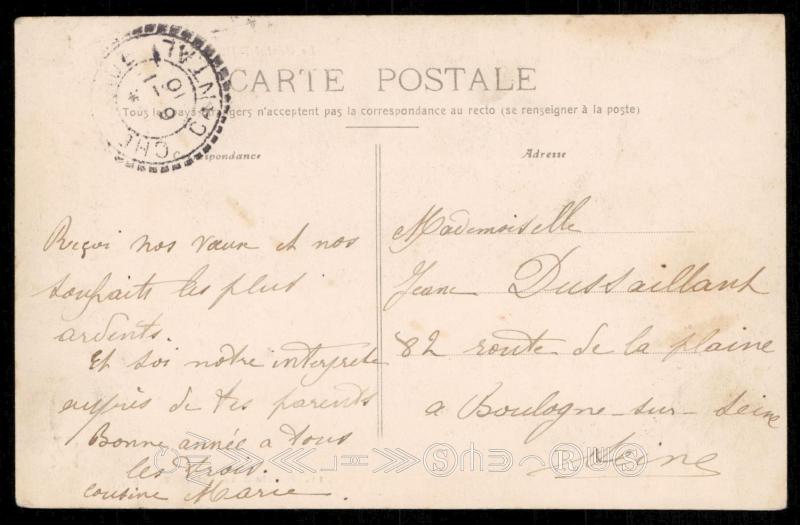 CARTE POSTALE
Tous les pays étrangers n'acceptent pas la correspondance au recto (se renseigner à la poste)
CANTAL
6 - 1
10
Adresse
Reçoi nos vœux et nos
souhaits les plus
ardents.
Et soi notre interprète
auprès de tes parents
Bonne année a tous
les trois.
cousine Marie.
Mademoiselle
Jeane Dussaillant
82 route de la plaine
a Boulogne-sur-Seine
Seine